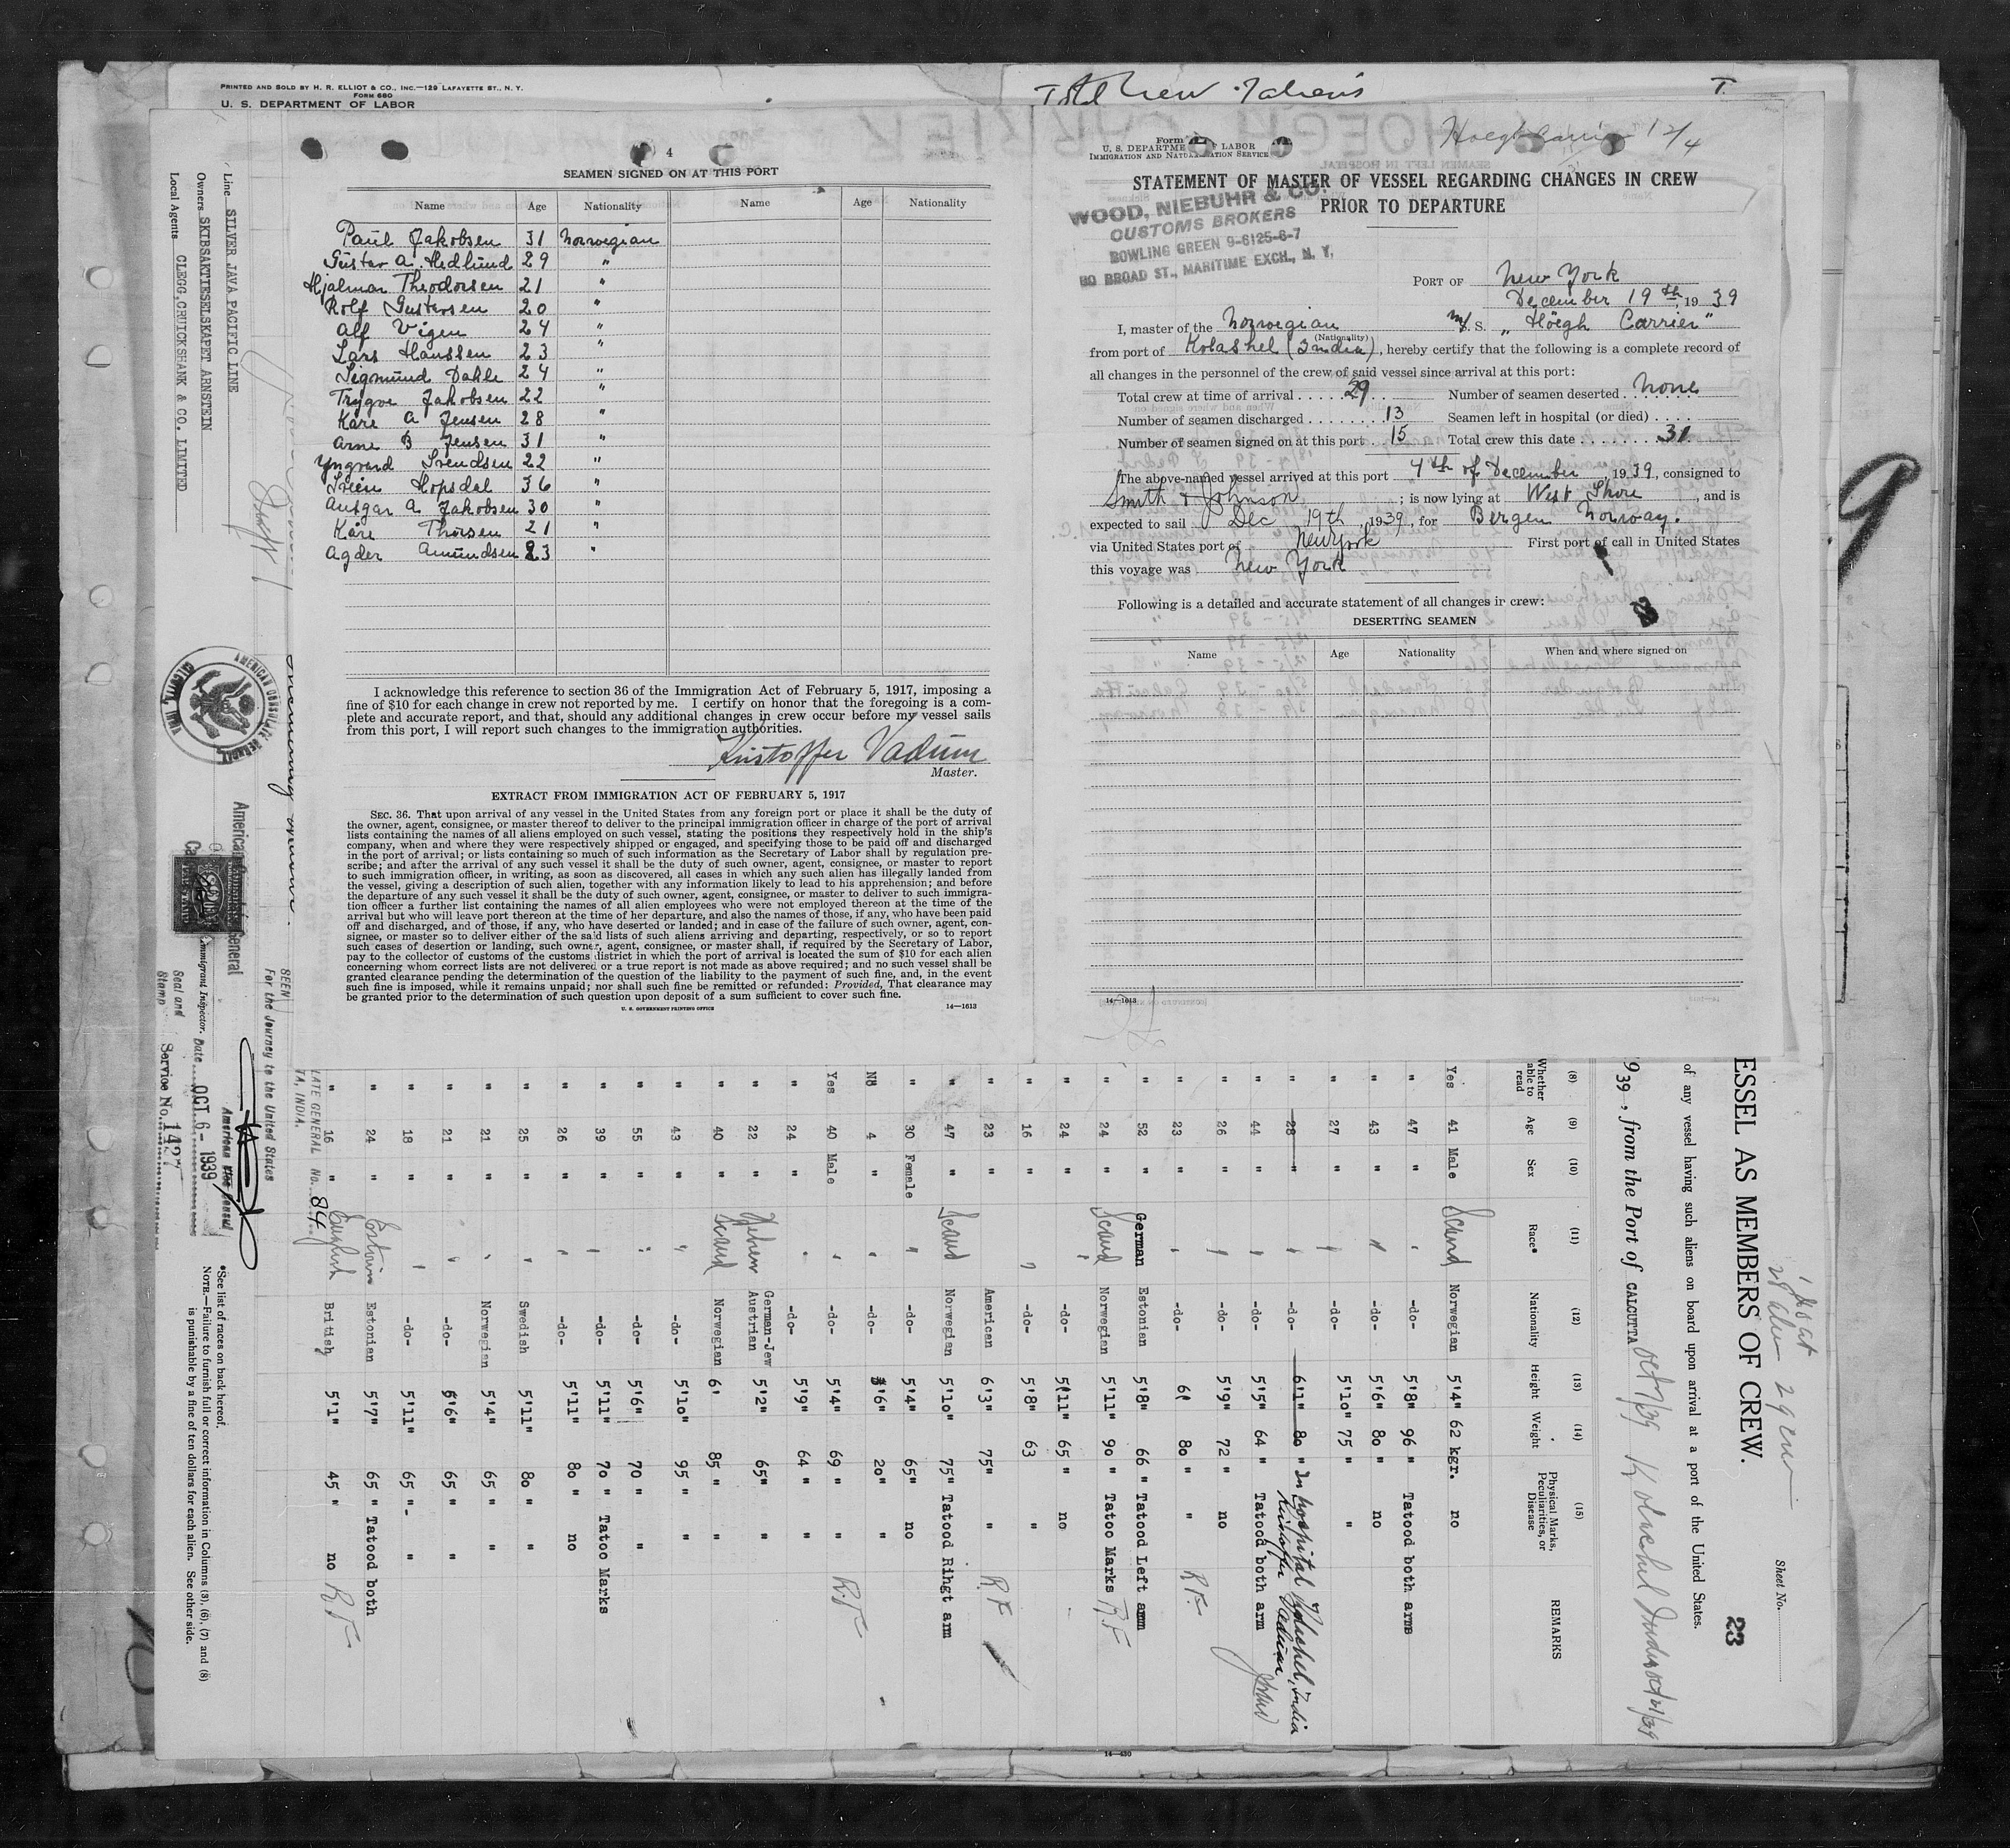 PRINTED AND SOLD BY H. R. ELLIOT & CO., INC.—129 LAFAYETTE ST., N. Y.
FORM 680
U. S. DEPARTMENT OF LABOR
4
SEAMEN SIGNED ON AT THIS PORT
Name Age Nationality Name Age Nationality
Paul Jakobsen 31 Norwegian
Gustav A. Hedlund 29 "
Hjalmar Theodorsen 21 "
Rolf Gustavsen 20 "
Alf Vigen 24 "
Lars Hanssen 23 "
Sigmund Dahle 24 "
Trygve Jakobsen 22
Kåre A Jensen 28 "
Arne B Jensen 31 "
Yngvard Svendsen 22 "
Svein Hopsdal 36 "
Ansgar A Jakobsen 30 "
Kåre Thorsen 21 "
Agder Amundsen 23 "
I acknowledge this reference to section 36 of the Immigration Act of February 5, 1917, imposing a
fine of $10 for each change in crew not reported by me. I certify on honor that the foregoing is a com-
plete and accurate report, and that, should any additional changes in crew occur before my vessel sails
from this port, I will report such changes to the immigration authorities.
Kristoffer Vadum
Master.
EXTRACT FROM IMMIGRATION ACT OF FEBRUARY 5, 1917
SEC. 36. That upon arrival of any vessel in the United States from any foreign port or place it shall be the duty of
the owner, agent, consignee, or master thereof to deliver to the principal immigration officer in charge of the port of arrival
lists containing the names of all aliens employed on such vessel, stating the positions they respectively hold in the ship's
company, when and where they were respectively shipped or engaged, and specifying those to be paid off and discharged
in the port of arrival; or lists containing so much of such information as the Secretary of Labor shall by regulation pre-
scribe; and after the arrival of any such vessel it shall be the duty of such owner, agent, consignee, or master to report
to such immigration officer, in writing, as soon as discovered, all cases in which any such alien has illegally landed from
the vessel, giving a description of such alien, together with any information likely to lead to his apprehension; and before
the departure of any such vessel it shall be the duty of such owner, agent, consignee, or master to deliver to such immigra-
tion officer a further list containing the names of all alien employees who were not employed thereon at the time of the
arrival but who will leave port thereon at the time of her departure, and also the names of those, if any, who have been paid
off and discharged, and of those, if any, who have deserted or landed; and in case of the failure of such owner, agent, con-
signee, or master so to deliver either of the said lists of such aliens arriving and departing, respectively, or so to report
such cases of desertion or landing, such owner, agent, consignee, or master shall, if required by the Secretary of Labor,
pay to the collector of customs of the customs district in which the port of arrival is located the sum of $10 for each alien
concerning whom correct lists are not delivered or a true report is not made as above required; and no such vessel shall be
granted clearance pending the determination of the question of the liability to the payment of such fine, and, in the event
such fine is imposed, while it remains unpaid; nor shall such fine be remitted or refunded: Provided, That clearance may
be granted prior to the determination of such question upon deposit of a sum sufficient to cover such fine.
U. S. GOVERNMENT PRINTING OFFICE 14—1613
T
Form
U. S. DEPARTME LABOR
IMMIGRATION AND NATURALIZATION SERVICE
Hoegh Carrier 12/4
STATEMENT OF MASTER OF VESSEL REGARDING CHANGES IN CREW
PRIOR TO DEPARTURE
WOOD, NIEBUHR & CO.
CUSTOMS BROKERS
BOWLING GREEN 9-6125-6-7
80 BROAD ST., MARITIME EXCH., N. Y.
PORT OF New York
December 19th, 1939
I, master of the Norwegian M/S. „Höegh Carrier"
(Nationality)
from port of Kolashel (India), hereby certify that the following is a complete record of
all changes in the personnel of the crew of said vessel since arrival at this port:
Total crew at time of arrival 29 Number of seamen deserted none
Number of seamen discharged 13 Seamen left in hospital (or died)
Number of seamen signed on at this port 15 Total crew this date 31
The above-named vessel arrived at this port 4th of December, 1939, consigned to
Smith & Johnson; is now lying at West Shore, and is
expected to sail Dec 19th, 1939, for Bergen Norway.
via United States port of New York First port of call in United States
this voyage was New York
Following is a detailed and accurate statement of all changes in crew:
DESERTING SEAMEN
Name Age Nationality When and where signed on
14—1613
9
Line SILVER JAVA PACIFIC LINE
Owners SKIBSAKTIESELSKAPET ARNSTEIN
Local Agents CLEGG,CRUICKSHANK & CO. LIMITED
AMERICAN CONSULATE GENERAL
CALCUTTA, INDIA
American Consulate General
SEEN
For the Journey to the United States
American Vice Consul
Immigrant Inspector.
Seal and
Stamp
Date OCT. 6- 1939
Service No. 1427
No. 84
ESSEL AS MEMBERS OF CREW.
Sheet No. 23
of any vessel having such aliens on board upon arrival at a port of the United States.
939, from the Port of CALCUTTA Oct 7/39 Kolachel India Oct 21/39
(8) (9) (10) (11) (12) (13) (14) (15)
Whether able to read Age Sex Race* Nationality Height Weight Physical Marks, Peculiarities, or Disease REMARKS
Yes 41 Male Scand Norwegian 5'4" 62 kgr. no
" 47 " " -do- 5'8" 96 " Tatood both arms
" 43 " " -do- 5'6" 80 " no
" 27 " " -do- 5'10" 75 " "
" 28 " " -do- 6'1" 80 " In hospital Kolachel, India Kristoffer Vadum
" 44 " " -do- 5'5" 64 " Tatood both arm
" 26 " " -do- 5'9" 72 " no
" 23 " " -do- 6' 80 " " R.F.
" 52 " German Estonian 5'8" 66 " Tatood Left arm
" 24 " Scand Norwegian 5'11" 90 " Tatoo Marks R.F
" 24 " -do- 5'11" 65 " no
" 16 " " -do- 5'8" 63 "
" 23 " American 6'3" 75" " R.F
" 47 " Scand Norwegian 5'10" 75" Tatood Rihgt arm
" 30 Female " -do- 5'4" 65" no
No 4 " " -do- 3'6" 20" "
Yes 40 Male " -do- 5'4" 69 " " R.F
" 24 " -do- 5'9" 64 " "
" 22 " Hebrew German-Jew Austrian 5'2" 65" "
" 40 " Scand Norwegian 6' 85 " "
" 43 " " -do- 5'10" 95 " "
" 55 " " -do- 5'6" 70 " "
" 39 " " -do- 5'11" 70 " Tatoo Marks
" 26 " " -do- 5'11" 80 " no
" 25 " " Swedish 5'11" 80 " "
" 21 " " Norwegian 5'4" 65 " "
" 21 " " -do- 5'6" 65 " "
" 18 " " -do- 5'11" 65 "- "
" 24 " Estonian Estonian 5'7" 65 " Tatood both
" 16 " English British 5'1" 45 " no R.F
*See list of races on back hereof.
NOTE.—Failure to furnish full or correct information in Columns (3), (6), (7) and (8)
is punishable by a fine of ten dollars for each alien. See other side.
14—430